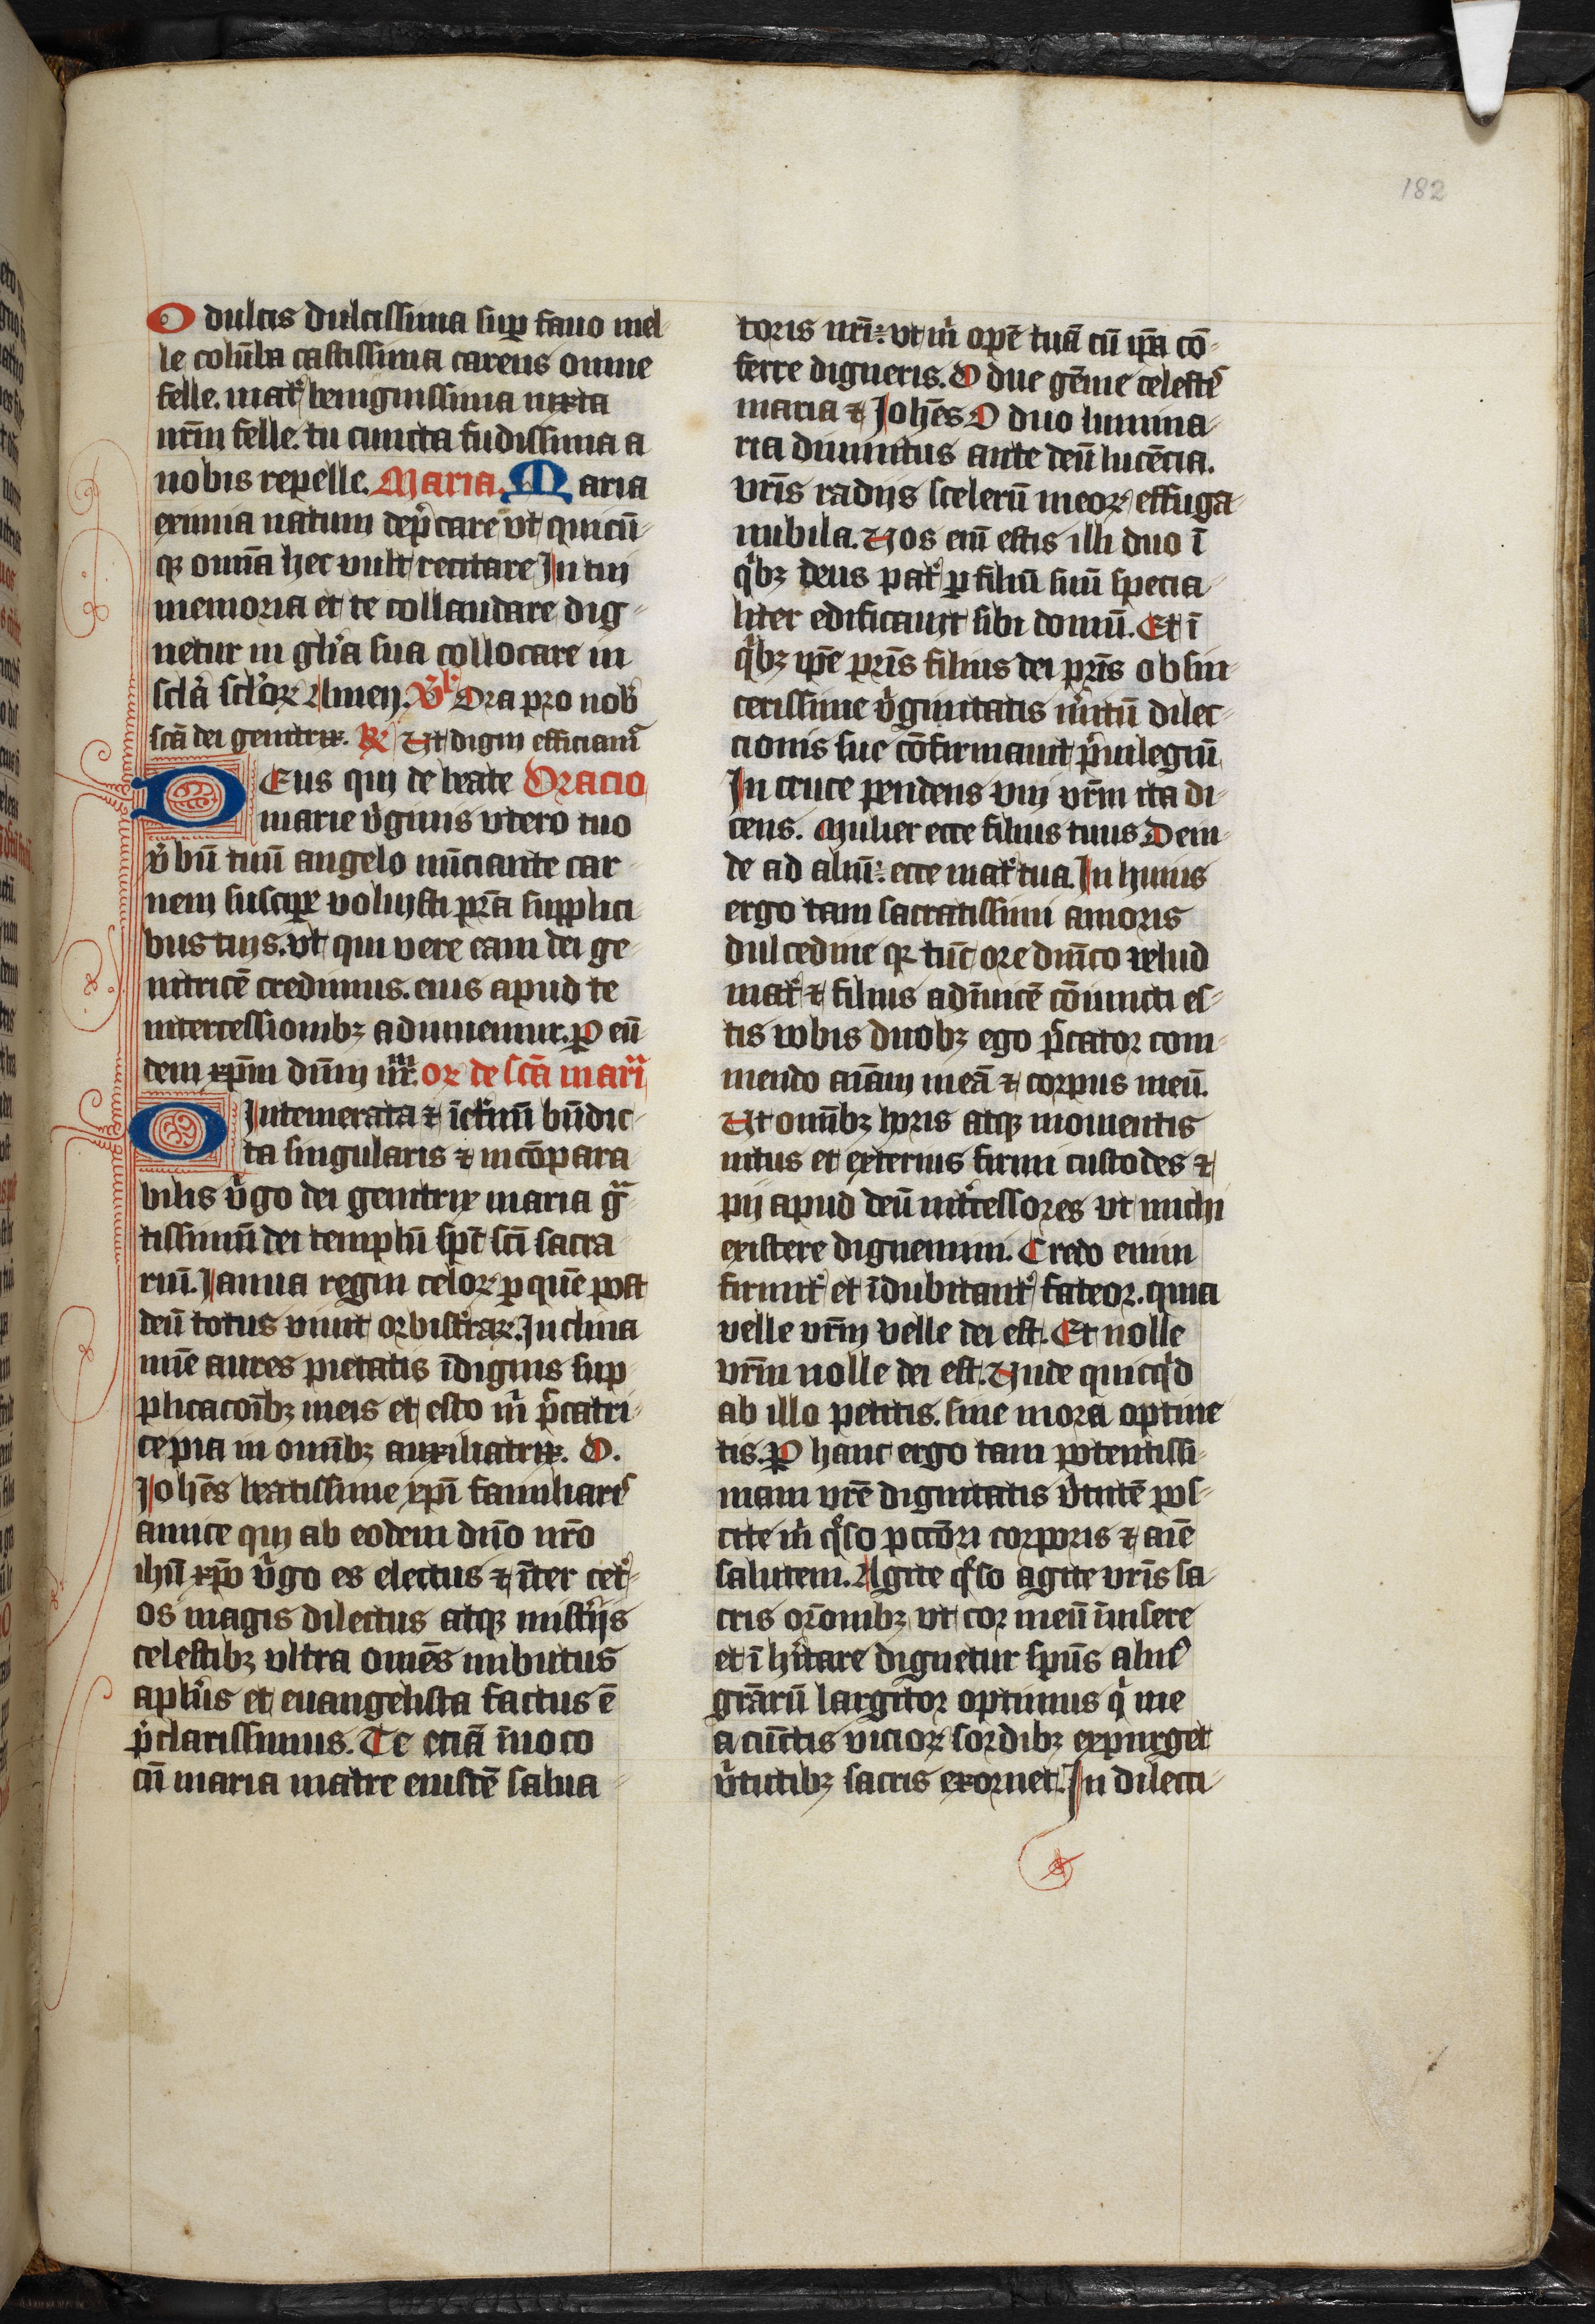 182
O dulcis dulcissima sup fauo mel-
le colūba castissima carens omne
felle. mat͛ benignissima iuxta
nr̄m felle. tu cuncta fudissima a
nobis repelle. Maria. Maria
eximia natum dep̄care vt quicū-
qꝫ om̄a hec vult recitare In tui
memoria et te collaudare dig-
netur in gl̄ia sua collocare in
sc̄la sc̄loꝝ Amen. V̄ Ora pro nob̄
sc̄a dei genitrix. R̄ Vt digni efficiam͛
DEus qui de beate Oracio
marie v̓ginis vtero tuo
v̓bū tuū angelo nūciante car-
nem suscipe͛ voluisti pr̄a supplici-
bus tuis. vt qui vere eam dei ge-
nitricē credimus. eius apud te
intercessionibꝫ adiuuemur. ꝑ eū-
dem xp̄m dn̄m nr̄m. or de sc̄a mari
O Intemerata ⁊ īet͛nū bn̄dic-
ta singularis ⁊ incōpara-
bilis v̓go dei genitrix maria gͣ-
tissimū dei templū sp̄c sc̄i sacra-
riū. Ianua regni celoꝝ ꝑ quē post
deū totus viuit orbis t͛raꝝ. Inclina
mīe aures pietatis īdignis sup-
plicacoībꝫ meis et esto m̓ p̄catri-
ce pia in om̄ibꝫ auxiliatrix. O.
Iohēs beatissime xp̄i familiar͛
amice qui ab eodem dn̄o nr̄o
ihū xp̄o v̓go es electus ⁊ īter cet͛-
os magis dilectus atqꝫ mist͛ijs
celestibꝫ vltra om̄ēs imbutus
apl̄us et euangelista factus ē
p̄clarissimus. Te eciā īuoco
cū maria matre eiusdē salua-
toris nr̄i: vt m̓ opē tuā cū ip̄a cō-
ferre digneris. O due gēme celest͛
maria ⁊ Iohēs O duo lumina-
ria diuinitus ante deū lucēcia.
vr̄is radijs scelerū meoꝝ effuga-
nubila. Vos em̄ estis illi duo ī
q̓bꝫ deus pat͛ ꝑ filiū suū specia-
liter edificauit sibi domū. Et ī
q̓bꝫ ip̄e pr̄is filius dei pr̄is ob sin-
cerissime v̓ginitatis m̓itū dilec-
cionis sue cōfirmauit p̓uilegiū
In cruce pendens vni vr̄m ita di-
cens. Mulier ecce filius tuus. Dein-
de ad aliū: ecce mat͛ tua. In huius
ergo tam sacratissimi amoris
dulcedine qꝫ tūc ore dn̄ico velud
mat͛ ⁊ filius adīuicē cōiuncti es-
tis vobis duobꝫ ego p̄cator com-
mendo aīam meā ⁊ corpus meū.
Vt om̄ibꝫ horis atqꝫ momentis
intus et exterius firmi custodes ⁊
pij apud deū int͛cessores vt michi
existere dignemini. Credo enim
firmit͛ et īdubitant͛ fateor. quia
velle vr̄m velle dei est. Et nolle
vr̄m nolle dei est. Vnde quicq̓d
ab illo petitis. sine mora optine-
tis. ꝑ hanc ergo tam potentissi-
mam vr̄e dignitatis v̓tutē pos-
cite m̓ q̄so pccōri corporis ⁊ aīe
salutem. Agite q̄so agite vr̄is sa-
cris or̄onibꝫ vt cor meū īuisere
et īhītare dignetur sp̄ūs alm͛
gr̄arū largitor optimus q̓ me
a cūctis vicioꝝ sordibꝫ expurget
v̓tutibꝫ sacris exornet. In dilecti-